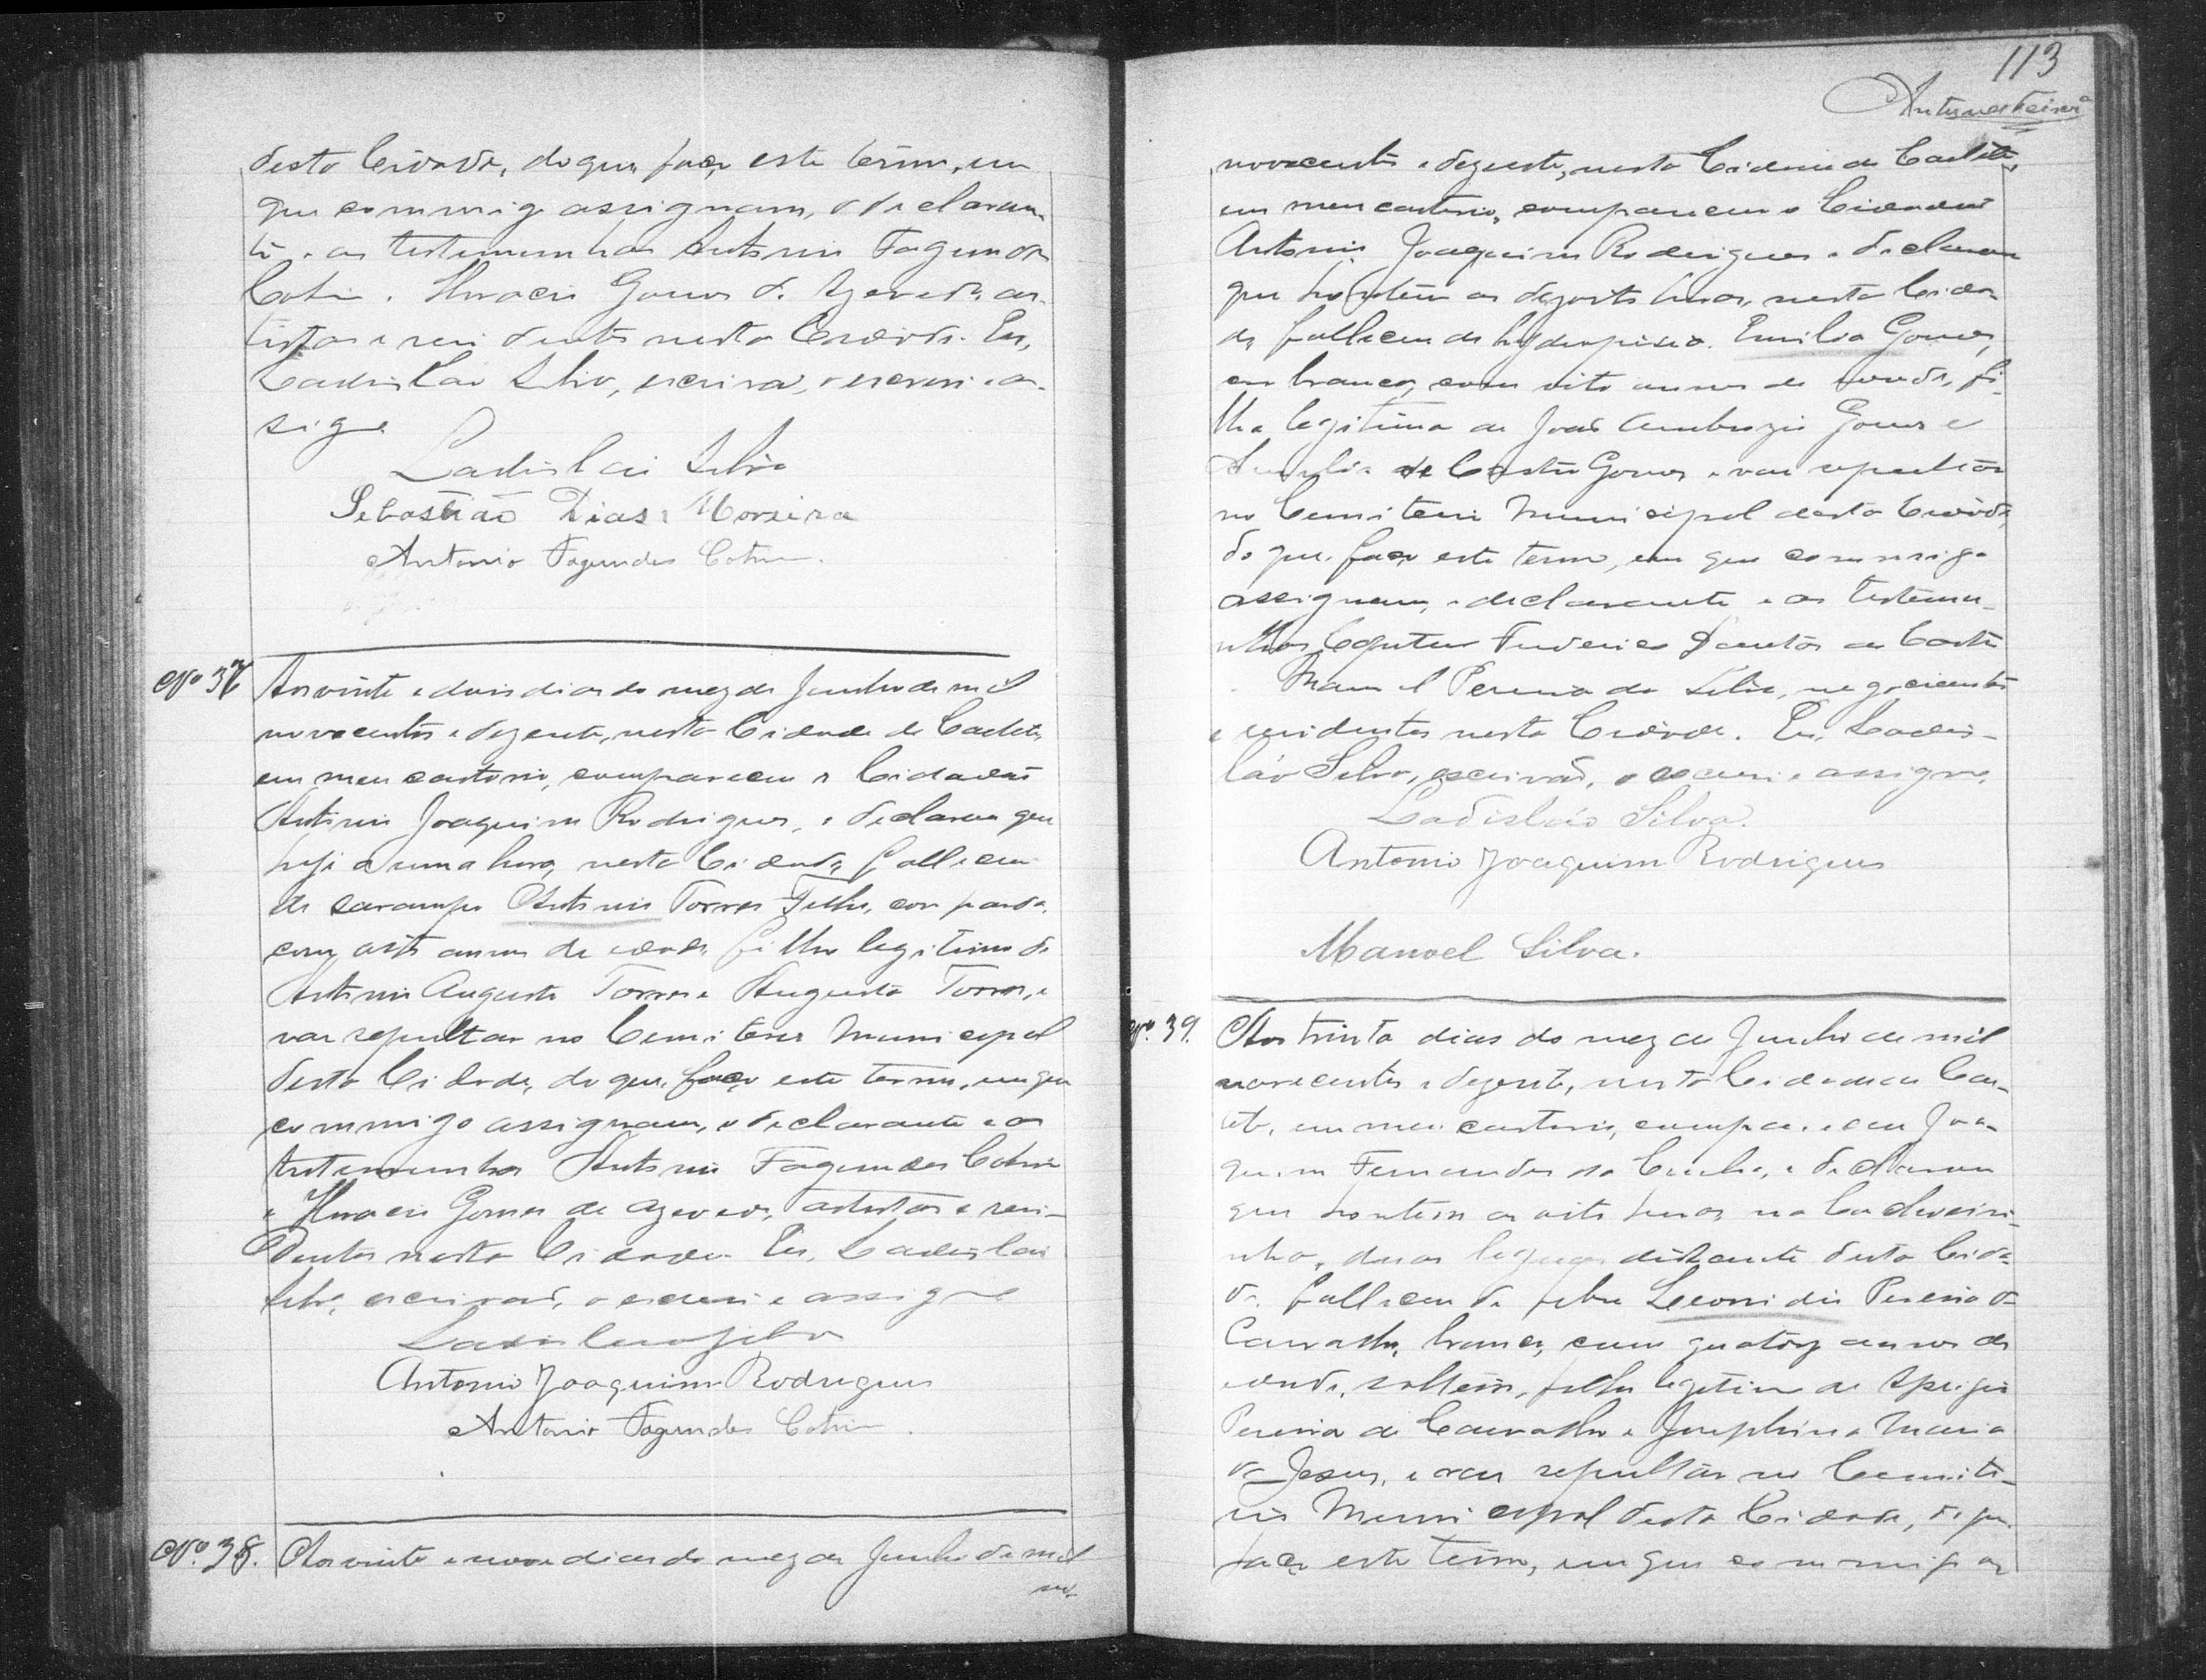 desta Cidade, do que faço este termo, em
que commigo assignam, o declaran-
te e as testemunhas Antonio Fagundes
Cotrim e Horacio Gomes de Azevedo, ar-
tistas e residentes nesta Cidade. Eu,
Ladislau Silva, escrivão, o escrevi e as-
signo
Ladislau Silva
Sebastião Dias Moreira
Antonio Fagundes Cotrim.
Nº 37 Aos vinte e dois dias do mez de Junho de mil
novecentos e dezesete, nesta Cidade de Caeteté,
em meu cartorio, compareceu o Cidadão
Antonio Joaquim Rodrigues, e declarou que
hoje a uma hora, nesta Cidade, falleceu
de sarampo Antonio Torres Filho, cor parda,
com oito annos de edade, filho legitimo de
Antonio Augusto Torres e Augusta Torres, e
vae sepultar no Cemiterio Municipal
desta Cidade, do que faço este termo, em que
commigo assignam, o declarante e as
testemunhas Antonio Fagundes Cotrim
e Horacio Gomes de Azevedo, artistas e resi-
dentes nesta Cidade. Eu, Ladislau
Silva, escrivão, o escrevi e assigno
Ladislau Silva
Antonio Joaquim Rodrigues
Antonio Fagundes Cotrim.
Nº 38. Aos vinte e nove dias do mez de Junho de mil
no-
113
novecentos e dezesete, nesta Cidade de Caeteté,
em meu cartorio, compareceu o Cidadão
Antonio Joaquim Rodrigues e declarou
que hontem as dezoito horas, nesta Cida-
de falleceu de hydropisia Emilia Gomes,
cor branca, com oito annos de edade, fi-
lha legitima de João Ambrozio Gomes e
de Castro Gomes e vae sepultar
no Cemiterio Municipal desta Cidade
do que faço este termo, em que commigo
assignam, o declarante e as testemu-
nhas Capitão Frederico de Castro
Manoel Pereira da Silva, negociantes
e residentes nesta Cidade. Eu, Ladis-
láo Silva, escrivão, o escrevi e assigno.
Ladisláo Silva.
Antonio Joaquim Rodrigues
Manoel Silva.
Nº 39. Aos trinta dias do mez de Junho de mil
novecentos e dezesete, nesta Cidade de Cae-
teté, em meu cartorio, compareceu Joa-
quim Fernandes da Cunha, e declarou
que hontem as oito horas, na Cachoeiri-
nha, duas leguas distante desta Cida-
de, falleceu de febre Leonidio Pereira de
Carvalho, branco, com quatorze annos de
edade, solteiro, filho legitimo de Sprigio
Pereira de Carvalho e Josephina Maria
de Jesus, e vae sepultar no Cemite-
rio Municipal desta Cidade, do que
faço este termo, em que commigo as